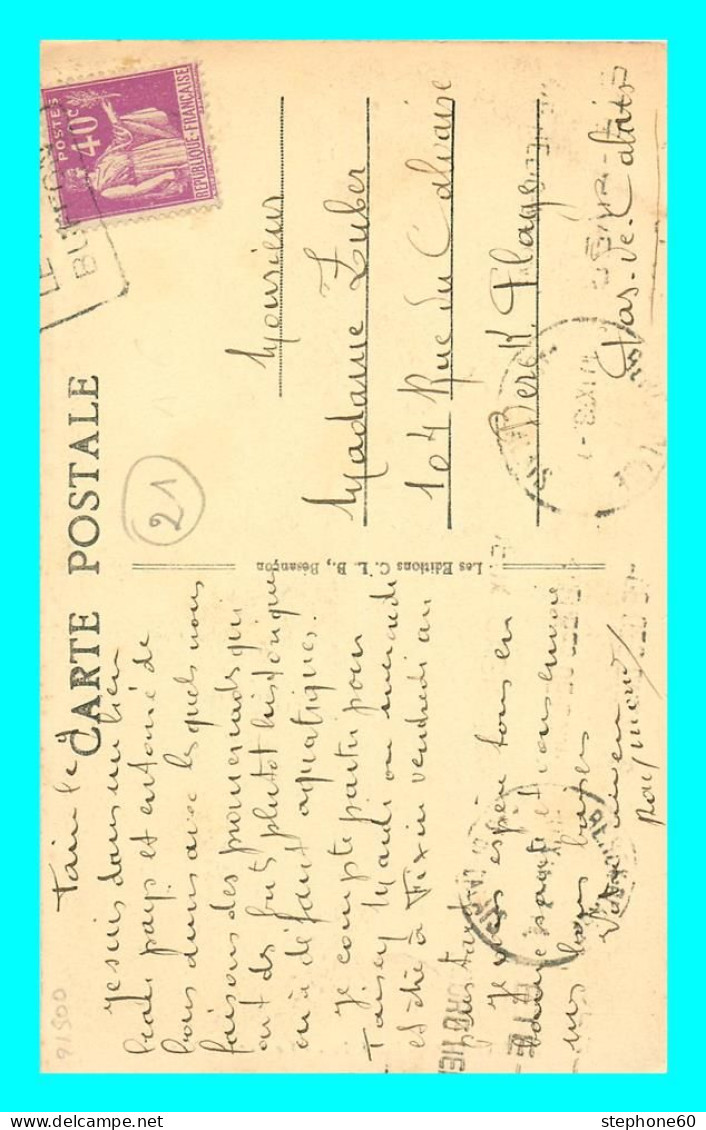 CARTE POSTALE
POSTES
40c
REPUBLIQUE FRANÇAISE
21
91500
Les Editions C. L. B., Bésançon
Monsieur
Madame Zuber
104 Rue du Calvaire
Berck Plage
Pas-de-Calais
le 4
Je suis dans un bien
beau pays et entouré de
bons amis avec lesquels nous
faisons des promenades qui
ont des buts plutôt historiques
ou à défaut aquatiques.
Je compte partir pour
Mardi ou mercredi
et être à Fixin vendredi au
plus tard
Je vous espère tous en
bonne santé et vous envoie
mes bons baisers
Raymond
stephone60